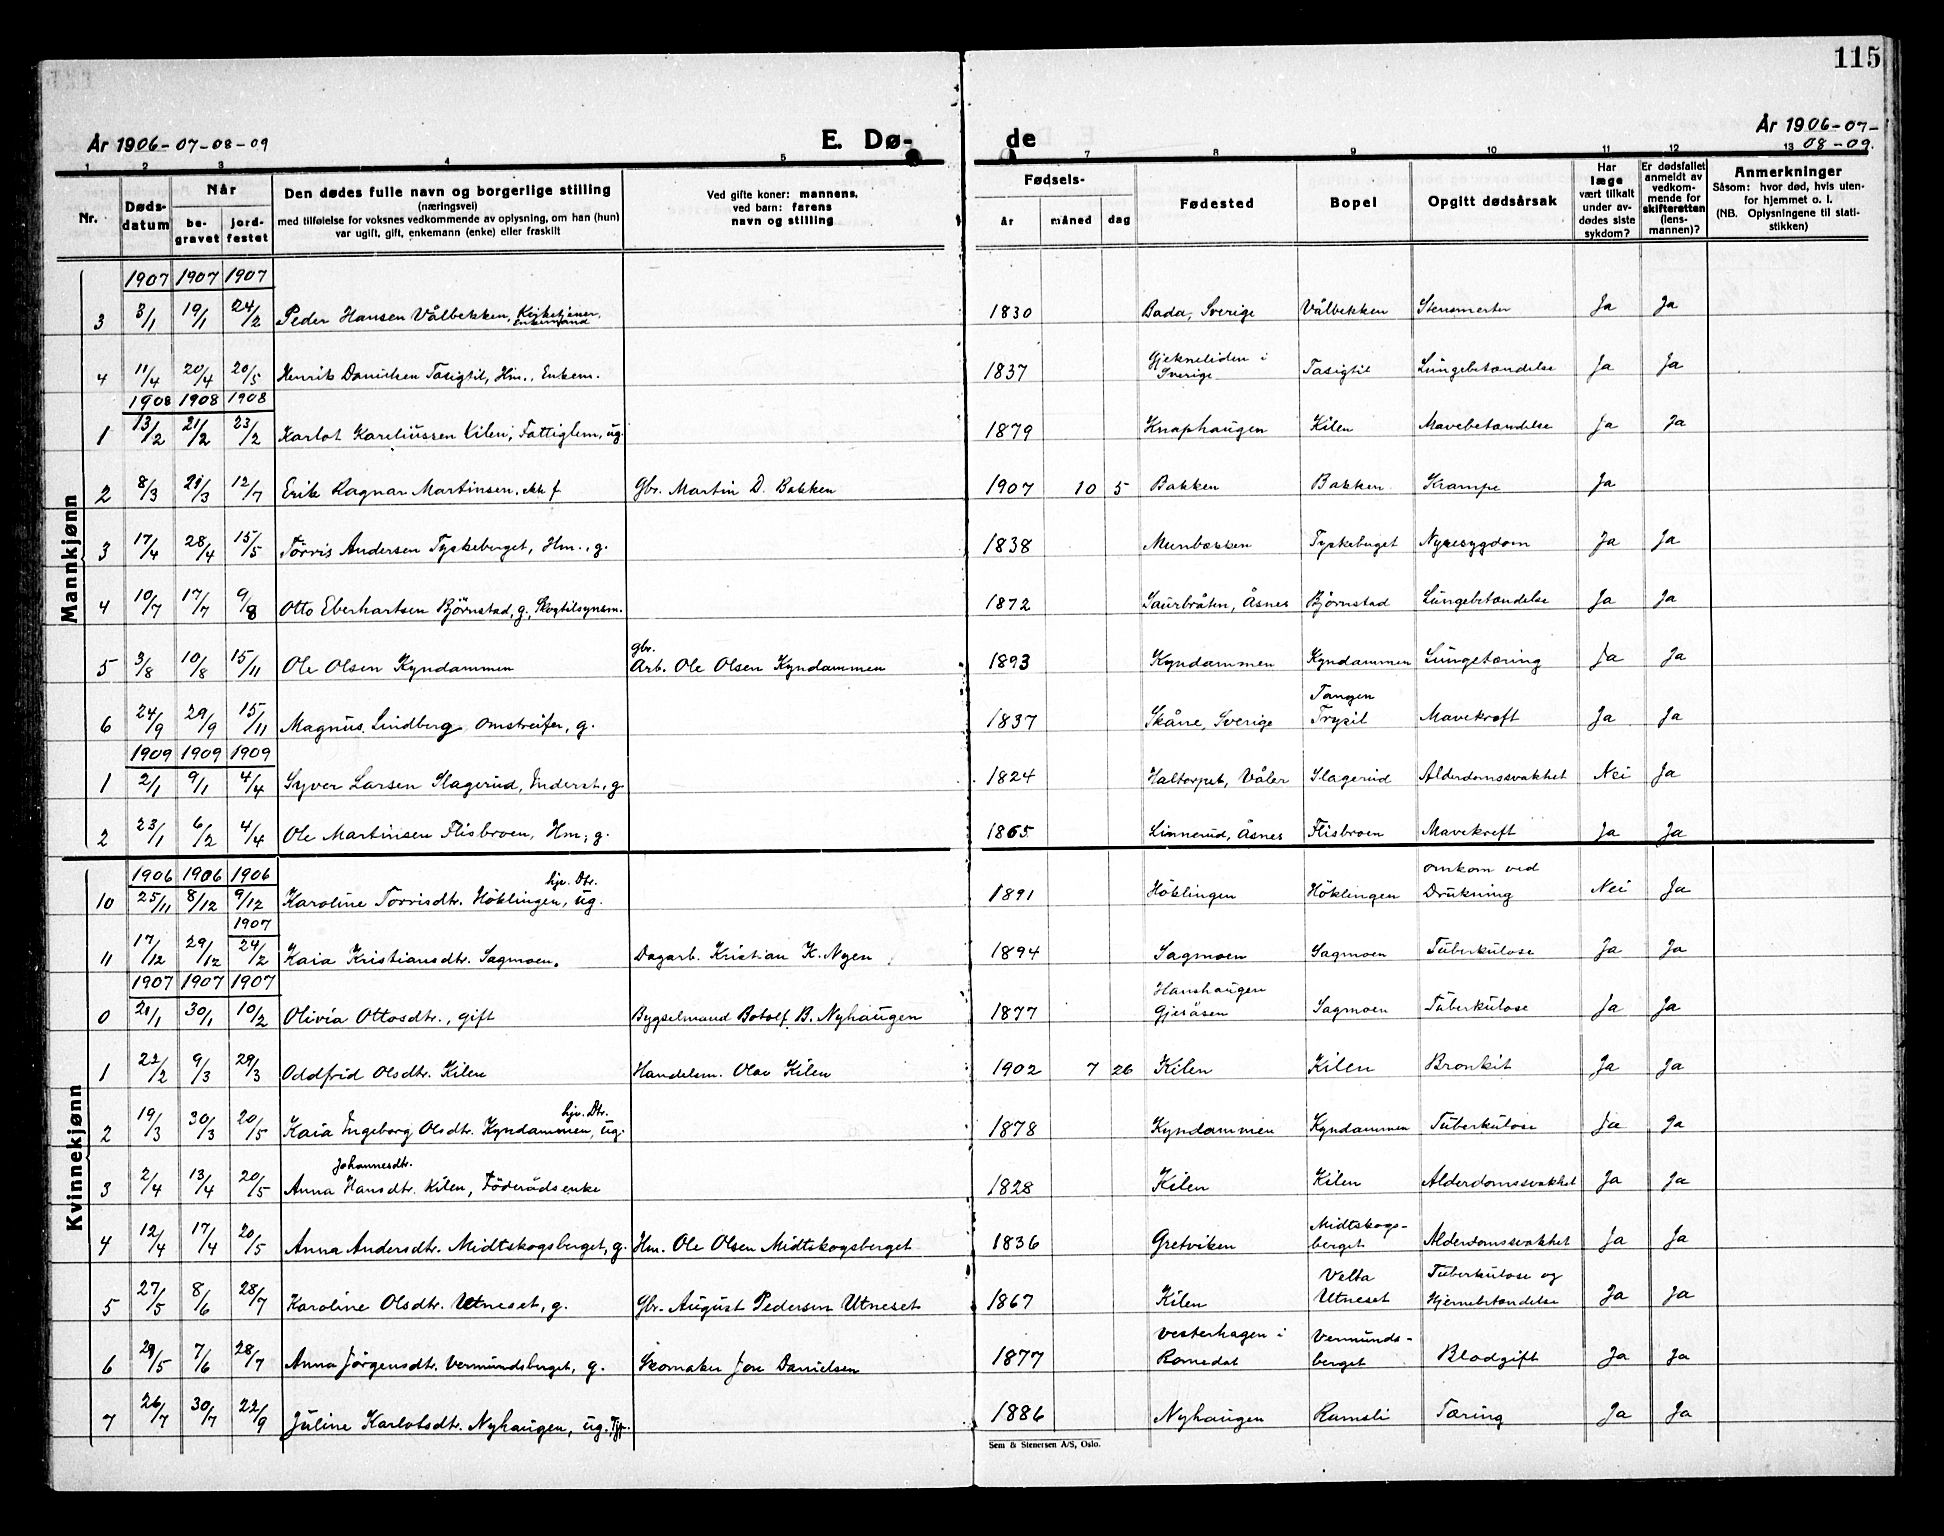 115
År 1906-07-08-09
E. Dø-
de
År 1906-07-
08-09.
1 2 3 4 5 7 8 9 10 11 12 13
Nr.
Døds-
datum
Når
be-
gravet
jord-
festet
Den dødes fulle navn og borgerlige stilling
(næringsvei)
med tilføielse for voksnes vedkommende av oplysning, om han (hun)
var ugift, gift, enkemann (enke) eller fraskilt
Ved gifte koner: mannens,
ved barn: farens
navn og stilling
Fødsels-
år måned dag
Fødested
Bopel
Opgitt dødsårsak
Har
læge
vært tilkalt
under av-
dødes siste
sykdom?
Er dødsfallet
anmeldt av
vedkom-
mende for
skifteretten
(lens-
mannen)?
Anmerkninger
Såsom: hvor død, hvis uten-
for hjemmet o. l.
(NB. Oplysningene til stati-
stikken)
Mannkjønn
1907 1907 1907
3 3/1 19/1 24/2 Peder Hansen Vålbekken, Kirketjener, Enkemand 1830 Bada, Sverige Vålbekken Stensmerter Ja Ja
4 11/4 20/4 20/5 Henrik Danielsen Tasigtil, Hm., Enkem. 1837 Gjekneliden i Sverige Tasigtil Lungebetændelse Ja Ja
1908 1908 1908
1 13/2 21/2 23/2 Karlot Kareliussen Kilen, Fattiglem, ug. 1879 Knaphaugen Kilen Mavebetændelse Ja Ja
2 8/3 21/3 12/7 Erik Ragnar Martinsen, ekte f Gbr. Martin D. Bakken 1907 10 5 Bakken Bakken Krampe Ja
3 17/4 28/4 15/5 Torris Andersen Tyskeberget, Hm., g. 1838 Munbækken Tyskeberget Nyresygdom Ja Ja
4 10/7 17/7 9/8 Otto Eberhartsen Bjørnstad, g, Skogtilsynsm. 1872 Saurbråten, Åsnes Bjørnstad Lungebetændelse Ja Ja
5 3/8 10/8 15/11 Ole Olsen Kyndammen gbr. Arb. Ole Olsen Kyndammen 1893 Kyndammen Kyndammen Lungetæring Ja Ja
6 24/9 29/9 15/11 Magnus Lindberg omstreifer, g. 1837 Skåne, Sverige Tangen Trysil Mavekreft Ja Ja
1909 1909 1909
1 2/1 9/1 4/4 Syver Larsen Slagerud, Inderst, g 1824 Haltorpet, Våler Slagerud Alderdomssvakhet Nei Ja
2 23/1 6/2 4/4 Ole Martinsen Flisbroen, Hm; g. 1865 Linnerud, Åsnes Flisbroen Mavekreft Ja Ja
Kvinnekjønn
1906 1906 1906
10 25/11 8/12 9/12 Karoline Torrisdtr. Höklingen, hjv. Dtr. ug. 1891 Höklingen Höklingen omkom ved Drukning Nei Ja
1907
11 17/12 29/12 24/2 Kaia Kristiansdtr. Sagmoen. Dagarb. Kristian K. Nyen 1894 Sagmoen Sagmoen Tuberkulose Ja Ja
1907 1907 1907
0 21/1 30/1 10/2 Olivia Ottosdtr., gift Bygselmand Botolf B. Nyhaugen 1877 Hanshaugen Gjesåsen Sagmoen Tuberkulose Ja Ja
1 22/2 9/3 29/3 Oddfrid Olsdtr. Kilen Handelsm. Olav Kilen 1902 7 26 Kilen Kilen Bronkit Ja Ja
2 19/3 30/3 20/5 Kaia Ingeborg Olsdtr. Kyndammen, hjv. Dtr. ug. 1878 Kyndammen Kyndammen Tuberkulose Ja Ja
3 2/4 13/4 20/5 Anna Johannesdtr. Hansdtr. Kilen, Föderådsenke 1828 Kilen Kilen Alderdomssvakhet Ja Ja
4 12/4 17/4 20/5 Anna Andersdtr. Midtskogsberget, g. Hm. Ole Olsen Midtskogsberget 1836 Gretviken Midtskogs-berget Alderdomssvakhet Ja Ja
5 27/5 8/6 28/7 Karoline Olsdtr. Utneset, g. Gbr. August Pedersen Utneset 1867 Kilen Velta Utneset Tuberkulose og Hjernebetændelse Ja Ja
6 29/5 7/6 28/7 Anna Jörgensdtr. Vermundsberget, g. Skomaker Jon Danielsen 1877 Vesterhagen i Romedal Vermunds-berget Blodgift Ja Ja
7 26/7 30/7 22/9 Juline Karlotsdtr. Nyhaugen, ug., Tjp. 1886 Nyhaugen Ramsli Tæring Ja Ja
Sem & Stenersen A/S, Oslo.